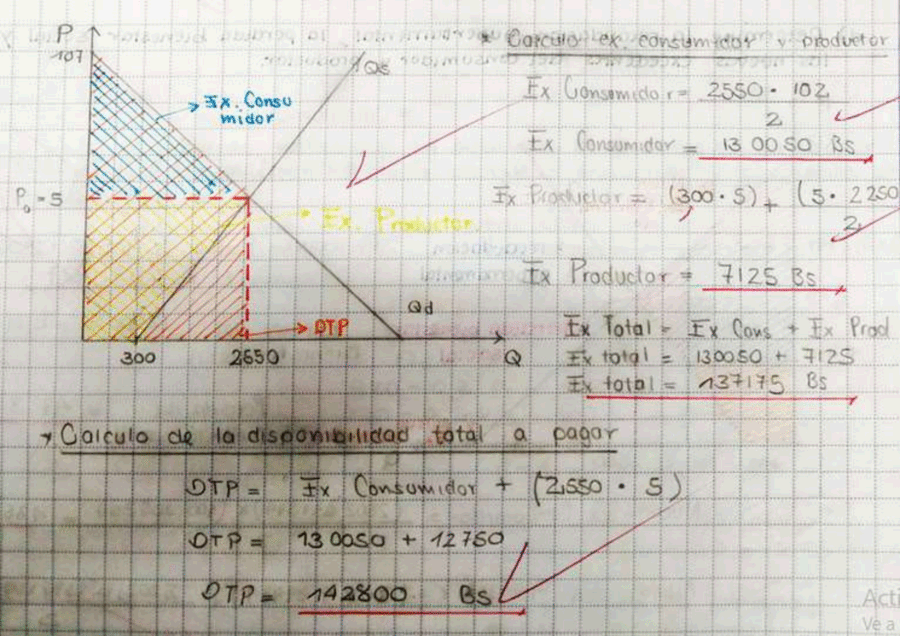 P
107
Qs
Ex. Consu
midor
P₀ = 5
Ex. Productor
Qd
DTP
300
2650
Q
* Calculo ex. consumidor y productor
Ex Consumidor = 2550 · 102
2
Ex Consumidor = 130050 Bs
Ex Productor = (300 · 5) + (5 · 2250
2
Ex Productor = 7125 Bs
Ex Total = Ex Cons + Ex Prod
Ex total = 130050 + 7125
Ex total = 137175 Bs
Calculo de la disponibilidad total a pagar
DTP = Ex Consumidor + (2550 · 5)
DTP = 130050 + 12750
DTP = 142800 Bs
Acti
Ve a